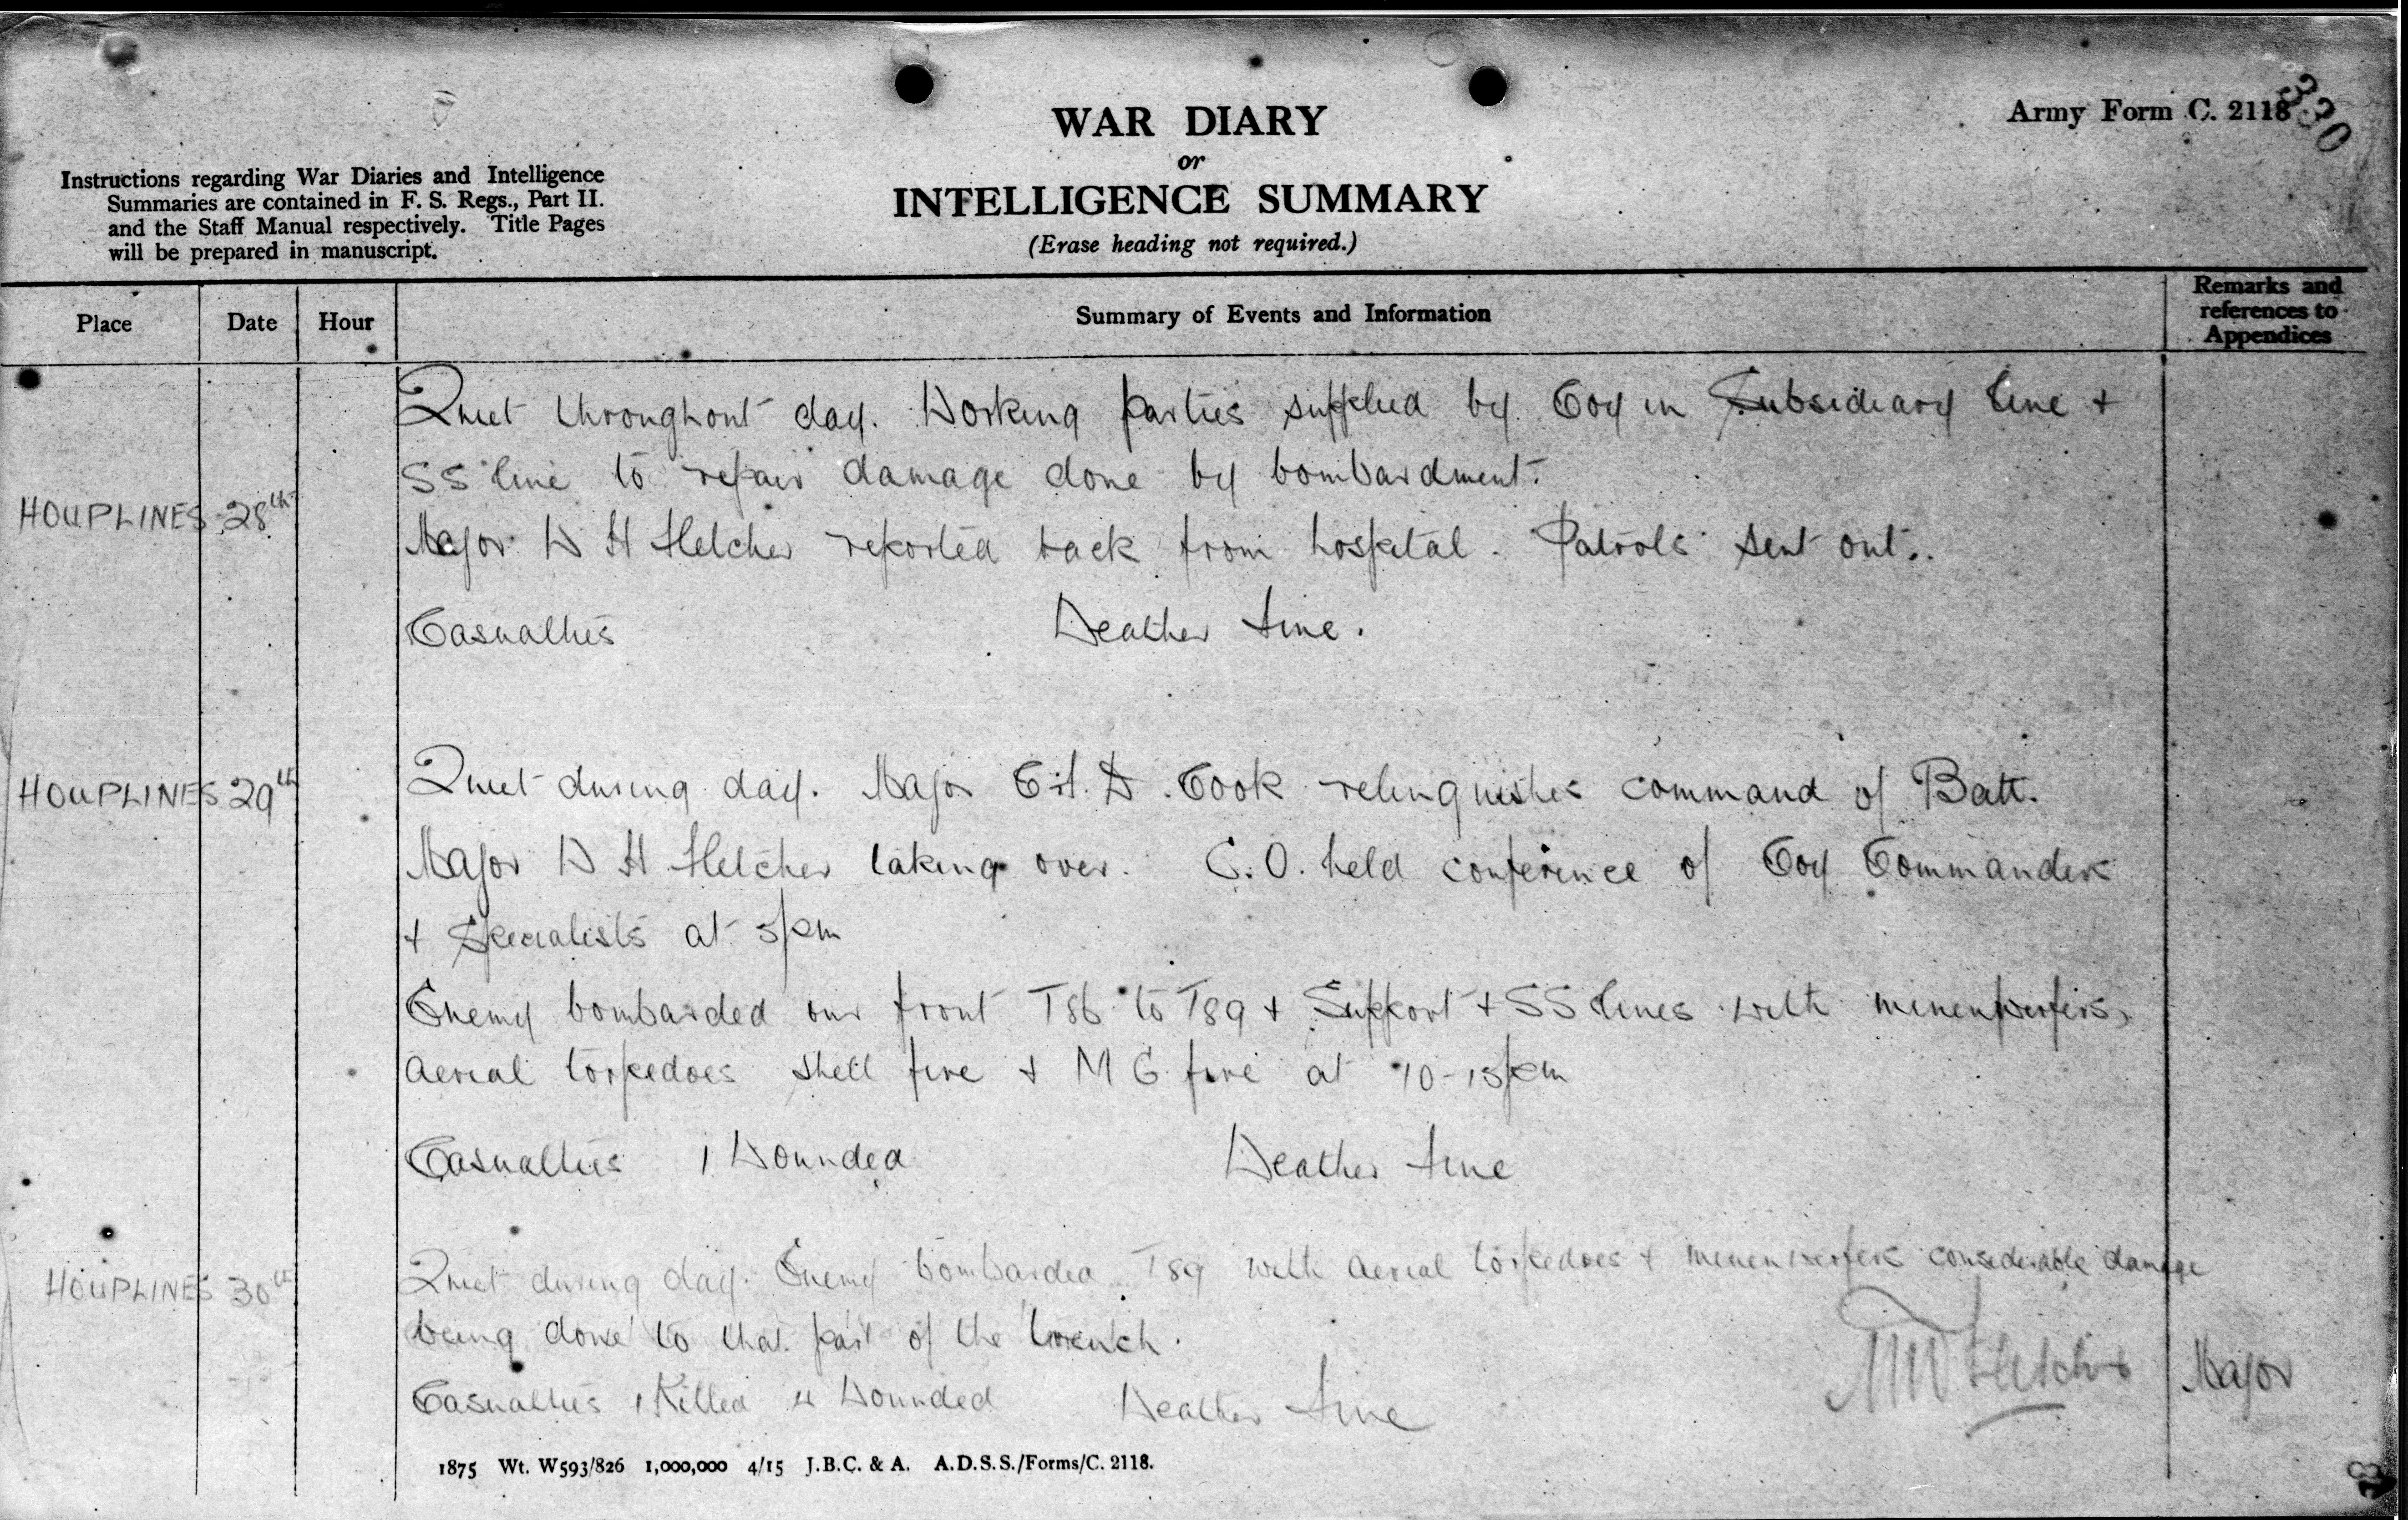 Army Form C. 2118
330
WAR DIARY
or
INTELLIGENCE SUMMARY
(Erase heading not required.)
Instructions regarding War Diaries and Intelligence
Summaries are contained in F. S. Regs., Part II.
and the Staff Manual respectively. Title Pages
will be prepared in manuscript.
Place Date Hour Summary of Events and Information Remarks and references to Appendices
Quiet throughout day. Working parties supplied by Coy in Subsidiary line +
SS line to repair damage done by bombardment.
HOUPLINES 28th
Major W H Fletcher reported back from hospital. Patrols sent out.
Casualties Weather fine.
HOUPLINES 29th Quiet during day. Major W. Cook relinquishes command of Batt.
Major W H Fletcher taking over. C.O. held conference of Coy Commanders
+ Specialists at 5pm
Enemy bombarded our front T86 to T89 + Support + SS lines with minenwerfers,
aerial torpedoes shell fire + M G fire at 10-15pm
Casualties 1 Wounded Weather fine
HOUPLINES 30th Quiet during day. Enemy bombarded T89 with aerial torpedoes + minenwerfers considerable damage
being done to that part of the trench.
Casualties 1 Killed 4 Wounded Weather fine
Fletcher Major
1875 Wt. W593/826 1,000,000 4/15 J.B.C. & A. A.D.S.S./Forms/C. 2118.